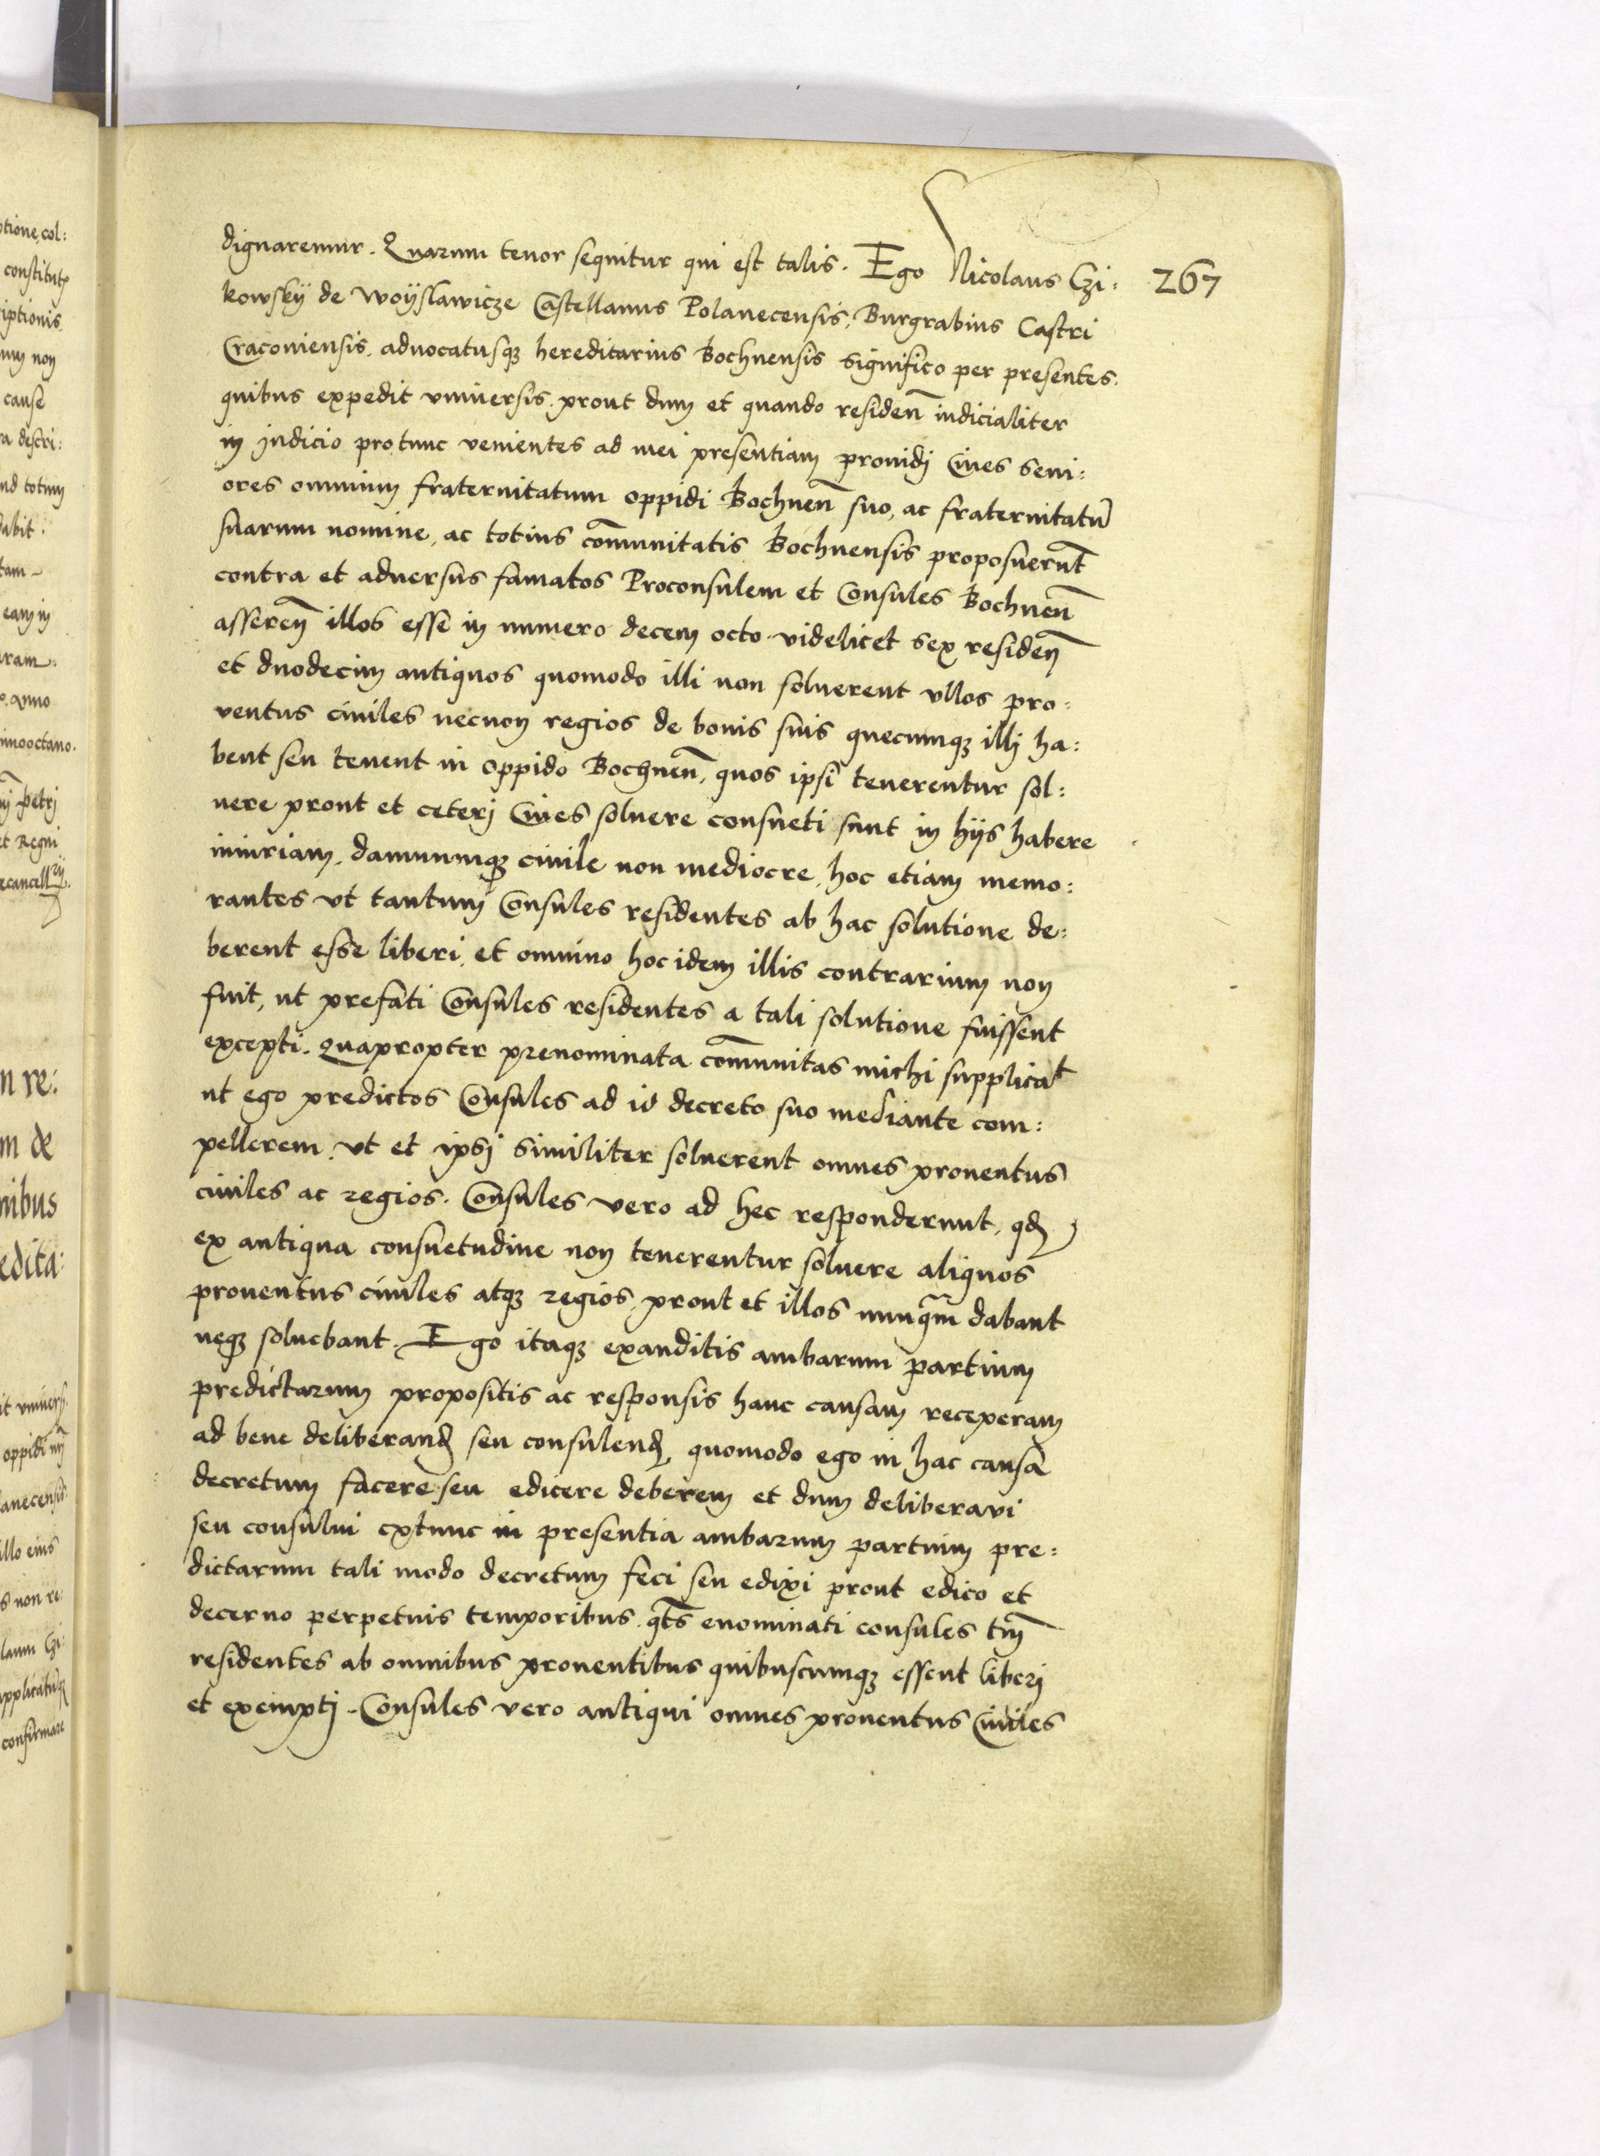 dignaremur. Quarum tenor sequitur qui est talis. Ego Nicolaus Czi: 267
kowskÿ de Woÿslawicze Castellanus Polanecensis, Burgrabius Castri
Cracoviensis, advocatusq hereditarius Bochnensis significo per presentes.
quibus expedit universis, prout dum et quando residen̄ iudicialiter
in Judicio protunc venientes ad mei presentiam providj Cives seni:
ores omnium fraternitatum oppidi Bochnen̄ suo, ac fraternitatū
suarum nomine, ac totius com̄unitatis Bochnensis proposuerūt
contra et adversus famatos Proconsulem et Consules Bochnen̄
asseren̄ illos esse in numero decem octo videlicet sex residen̄
et duodecim antiquos quomodo illi non solverent ullos pro:
ventus civiles necnon regios de bonis suis quecumq illj ha:
bent seu tenent in oppido Bochnen̄, quos ipsi tenerentur sol:
vere prout et ceterj Cives solvere consueti sunt in hijs habere
iniuriam, damnumq civile non mediocre, hoc etiam memo:
rantes ut tantum Consules residentes ab hac solutione de:
berent esse liberi, et omnino hoc idem illis contrarium non
fuit, ut prefati Consules residentes a tali solutione fuissent
excepti. Quapropter prenominata com̄unitas michi supplicat
ut ego predictos Consules ad id decreto suo mediante com:
pellerem, ut et ipsj similiter solverent omnes proventus
civiles ac regios. Consules vero ad hec responderunt, qd
ex antiqua consuetudine non tenerentur solvere aliquos
proventus civiles atq regios, prout et illos nunq̄m dabant
neq solvebant. Ego itaq exauditis ambarum partium
predictarum propositis ac responsis hanc causam receperam
ad bene deliberand seu consulend, quomodo ego in hac causa
decretum facere seu edicere deberem et dum deliberavi
seu consului extunc in presentia ambarum partium pre:
dictarum tali modo decretum feci seu edixi prout edico et
decerno perpetuis temporibus q̄ts enominati consules tm̄
residentes ab omnibus proventibus quibuscumq essent liberj
et exemptj. Consules vero antiqui omnes proventus Civiles